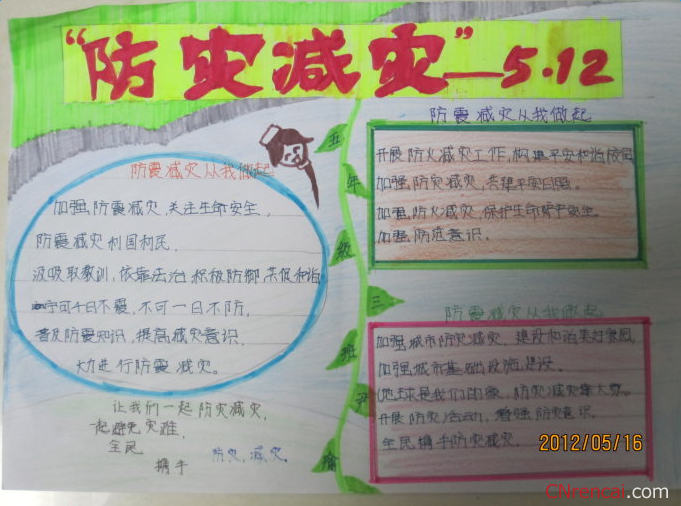 “防灾减灾”—5.12
防震减灾从我做起
加强防震减灾,关注生命安全,
防震减灾利国利民,
汲吸取教训,依靠法治积极防御,共促和谐
宁可千日不震,不可一日不防,
普及防震知识,提高减灾意识,
大力进行防震减灾。
让我们一起防灾减灾,
一起避免灾难,
全民
携手
防灾,减灾。
五
年
级
三
班
防震减灾从我做起
开展防火减灾工作,构建平安和谐校园
加强防灾减灾,共建平安
加强防火减灾,保护生命财产安全。
加强防范意识。
防震减灾从我做起
加强城市防灾减灾,建设和谐美好家园,
加强城市基础设施建设,
地球是我们的家,防灾减灾靠大家。
开展防灾活动,增强防灾意识,
全民携手防灾减灾。
2012/05/16
CNrencai.com